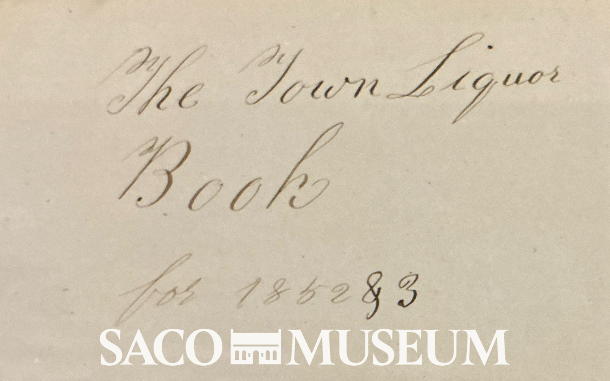 The Town Liquor
Book
for 1852 & 3
SACO MUSEUM